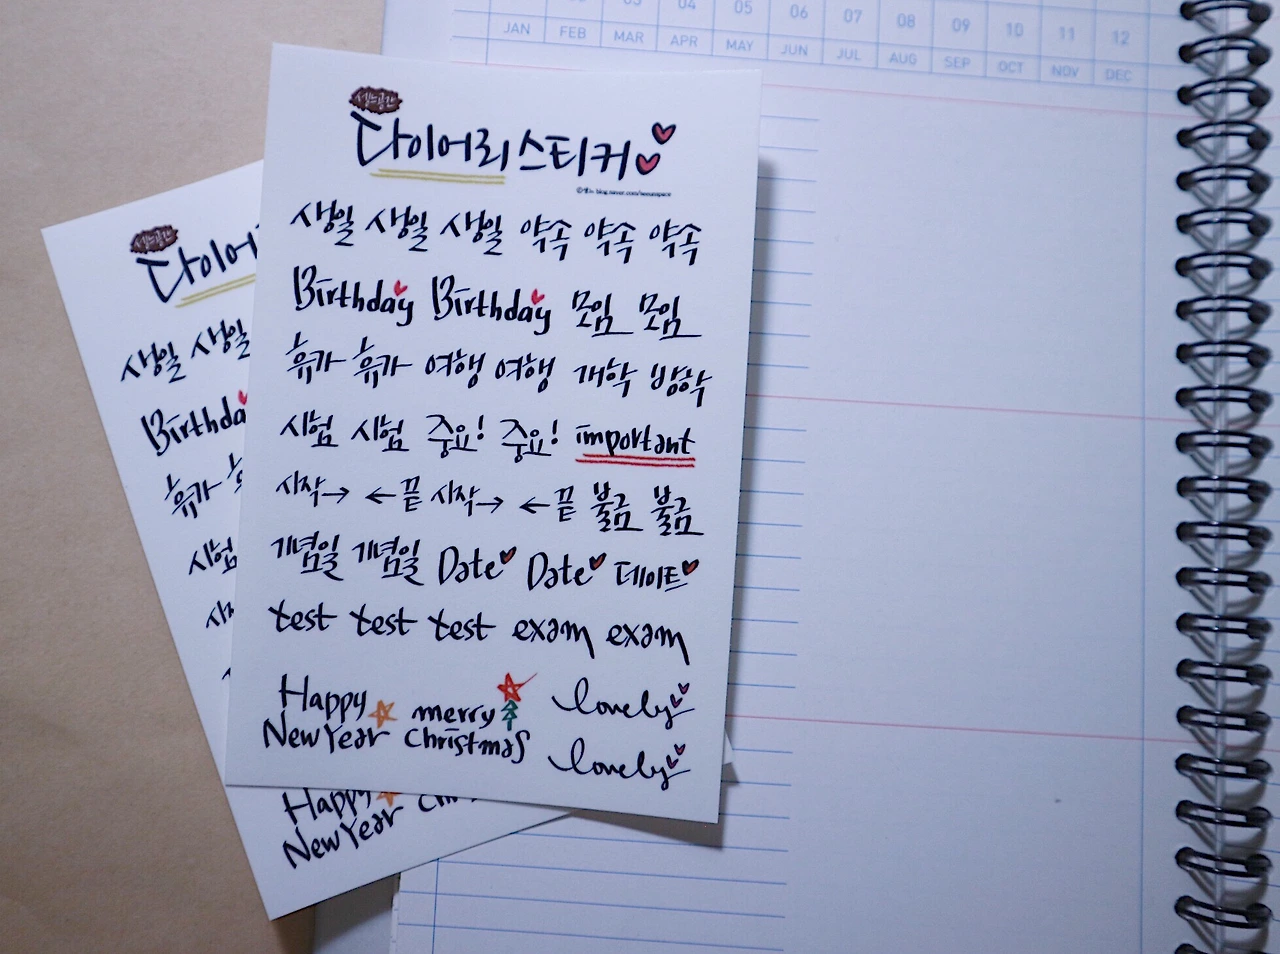 01 02 03 04 05 06 07 08 09 10 11 12
JAN FEB MAR APR MAY JUN JUL AUG SEP OCT NOV DEC
다이어리 스티커
생일 생일 생일 약속 약속 약속
Birthday Birthday 모임 모임
휴가 휴가 여행 여행 개학 방학
시험 시험 중요! 중요! important
시작→ ←끝 시작→ ←끝 불금 불금
기념일 기념일 Date Date 데이트
test test test exam exam
Happy merry lovely
New Year Christmas lovely
다이어
생일 생일
Birthda
휴가
시험
Happy
New Year